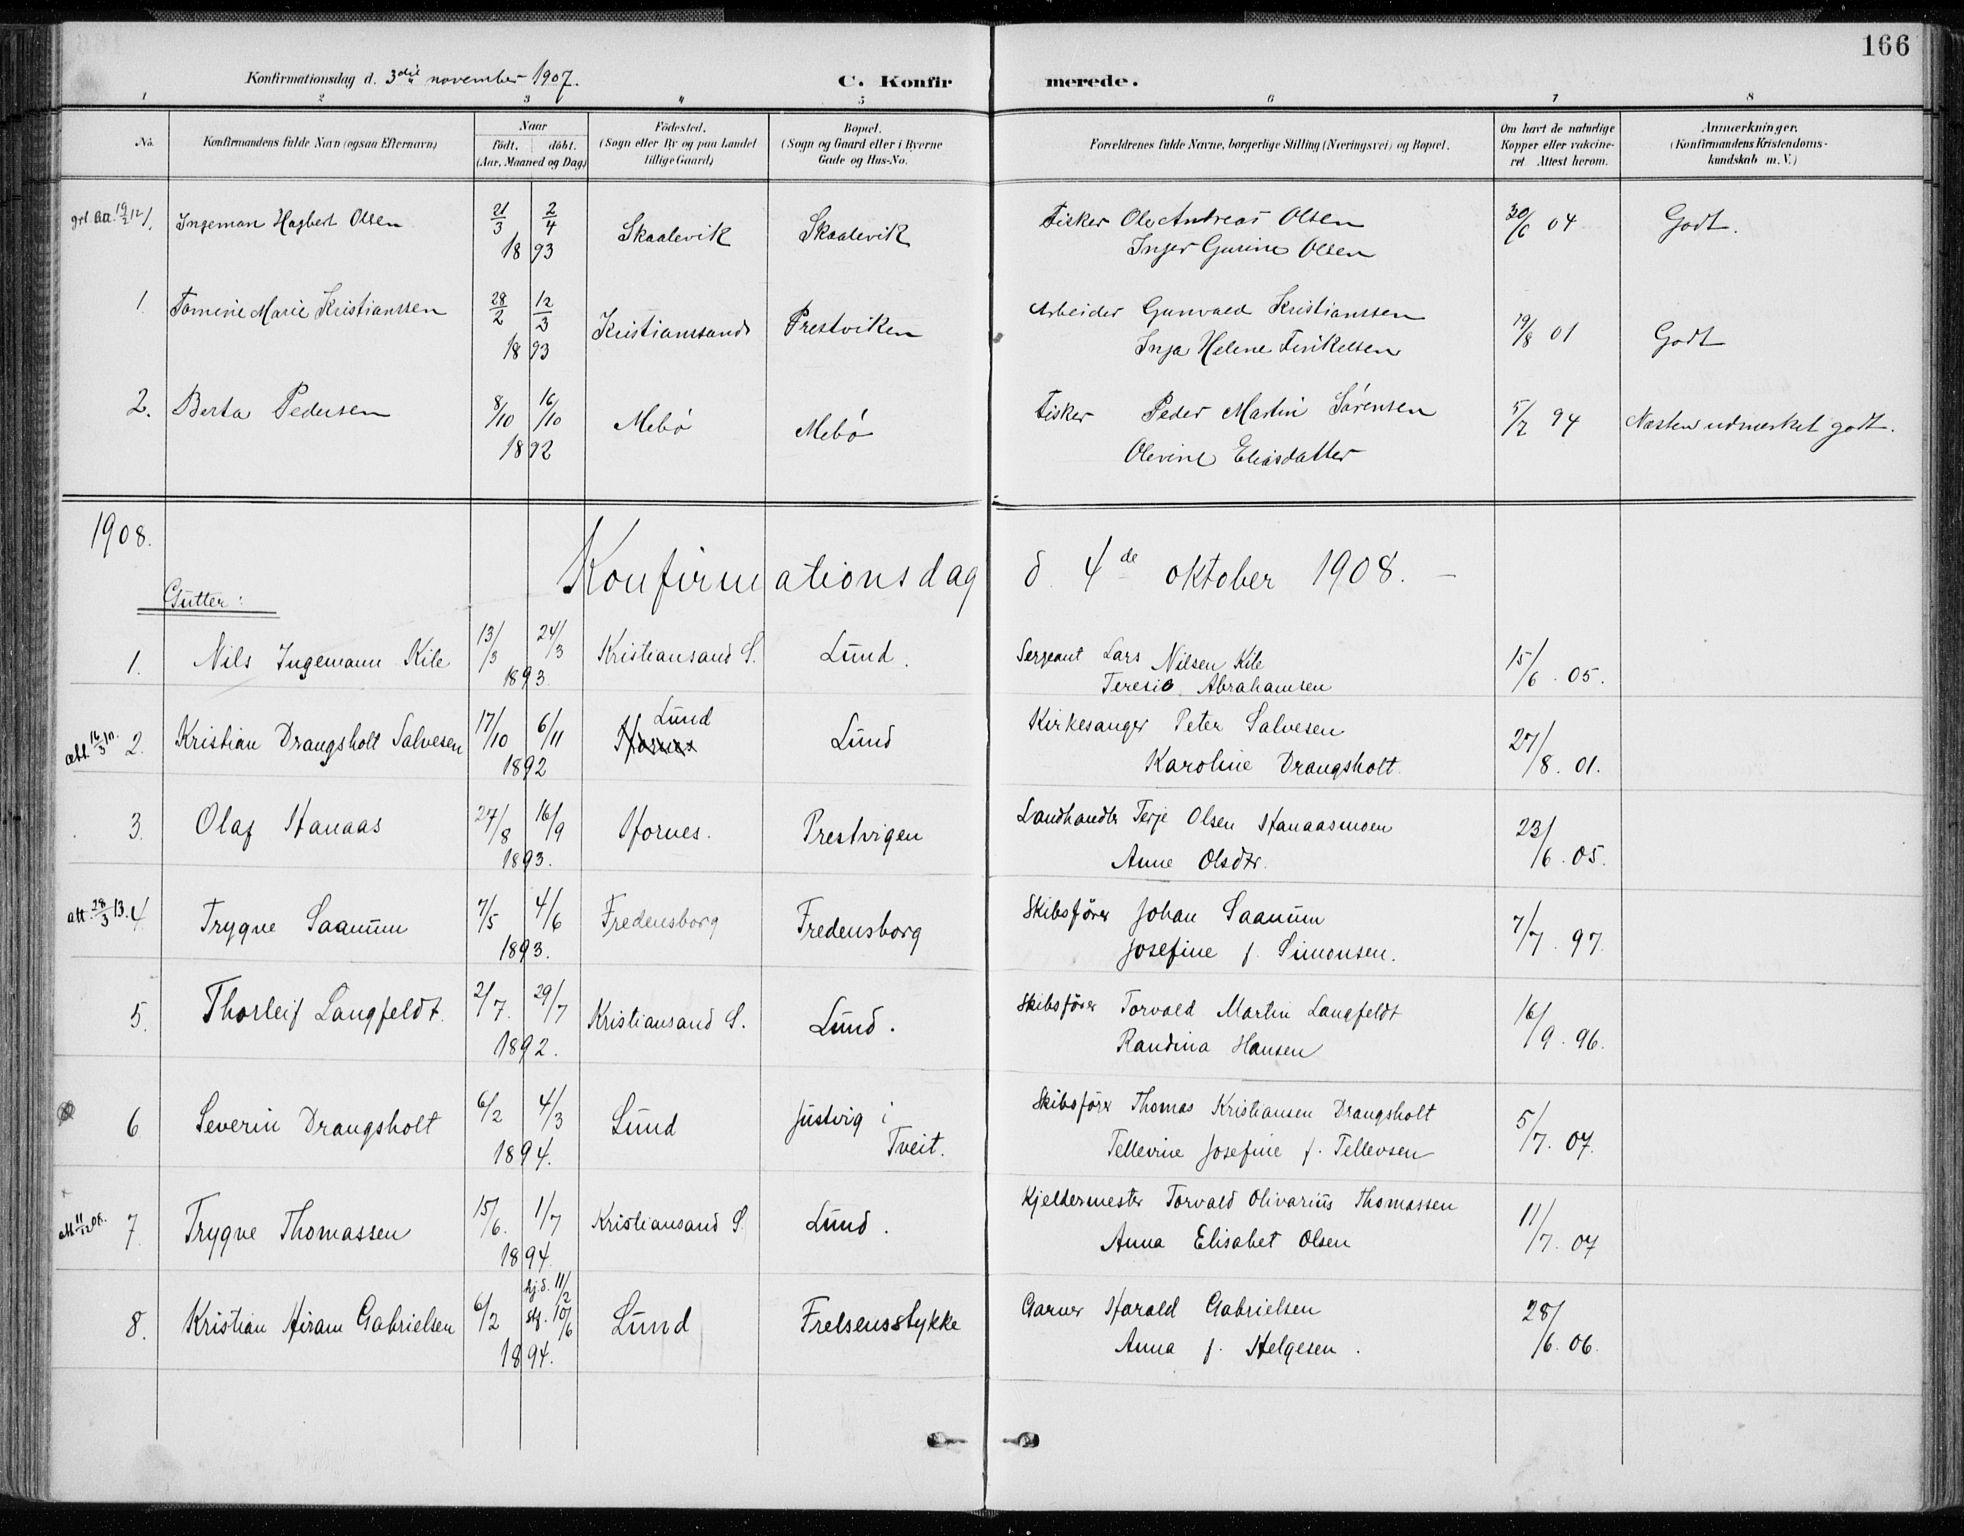 166
Konfirmationsdag d. 3die november 1907. C. Konfirmerede.
1 2 3 4 5 6 7 8
No. Konfirmandens fulde Navn (ogsaa Efternavn) Naar født. døbt. (Aar, Maaned og Dag) Fødested. (Sogn eller By og paa Landet tillige Gaard) Bopæl. (Sogn og Gaard eller i Byerne Gade og Hus-No. Forældrenes fulde Navne, borgerlige Stilling (Næringsvei) og Bopæl. Om havt de naturlige Kopper eller vakcineret Attest herom. Anmærkninger. (Konfirmandens Kristendomskundskab m. V.)
19/2 12 1. Ingeman Hagbert Olsen 21/3 2/4 Skaalevik Skaalevik Fisker Ole Andreas Olsen 30/6 04 Godt.
1893 Inger Gurine Olsen
1. Tomine Marie Kristianssen 28/2 12/3 Kristianssands Prestviken Arbeider Gunvald Kristianssen 19/8 01 Godt
1893 Inga Helene Terkelsen
2. Berta Pedersen 8/10 16/10 Mebø Mebø Fisker Peder Martin Sørensen 5/7 94 Næsten udmerket godt.
1892 Olevine Eliasdatter
1908.
Konfirmationsdag d. 4de oktober 1908. —
Gutter:
1. Nils Ingemann Kile 13/3 24/3 Kristiansand S. Lund. Sergeant Lars Nilsen Kile 15/6. 05.
1893. Teresie Abrahamsen
att. 16/3 2. Kristian Drangsholt Salvesen 17/10 6/11 Lund Lund Kirkesanger Peter Salvesen 27/8. 01.
1892 Karoline Drangsholt.
3. Olaf Hanaas 27/8 16/9 Hornes. Prestvigen Landhandler Terje Olsen Hanaasmoen 23/6. 05.
1893. Anne Olsdtr.
att. 28/3 13. 4 Trygve Saanum 7/5 4/6 Fredensborg Fredensborg Skibsfører Johan Saanum 7/7. 97.
1893. Josefine f. Simonsen.
5. Thorleif Langfeldt. 2/7. 29/7 Kristiansand S. Lund. Skibsfører Torvald Martin Langfeldt 16/9. 96.
1892. Randina Hansen
6 Severin Drangsholt 6/2 4/3 Lund Justvig i Tveit. Skibsfører Thomas Kristiansen Drangsholt 5/7. 07.
1894. Tellevine Josefine f. Tellevsen
att. 11/12 08. 7. Trygve Thomassen 15/6. 1/7 Kristiansand S. Lund. Kjeldermester Torvald Olivarius Thomassen 11/7. 07
1894. Anna Elisabet Olsen
8. Kristian Hiram Gabrielsen 6/2 hj.d. 11/2 stf. 10/6 Lund Frelsensstykke Garver Harald Gabrielsen 28/6. 06.
1894. Anna f. Helgesen.